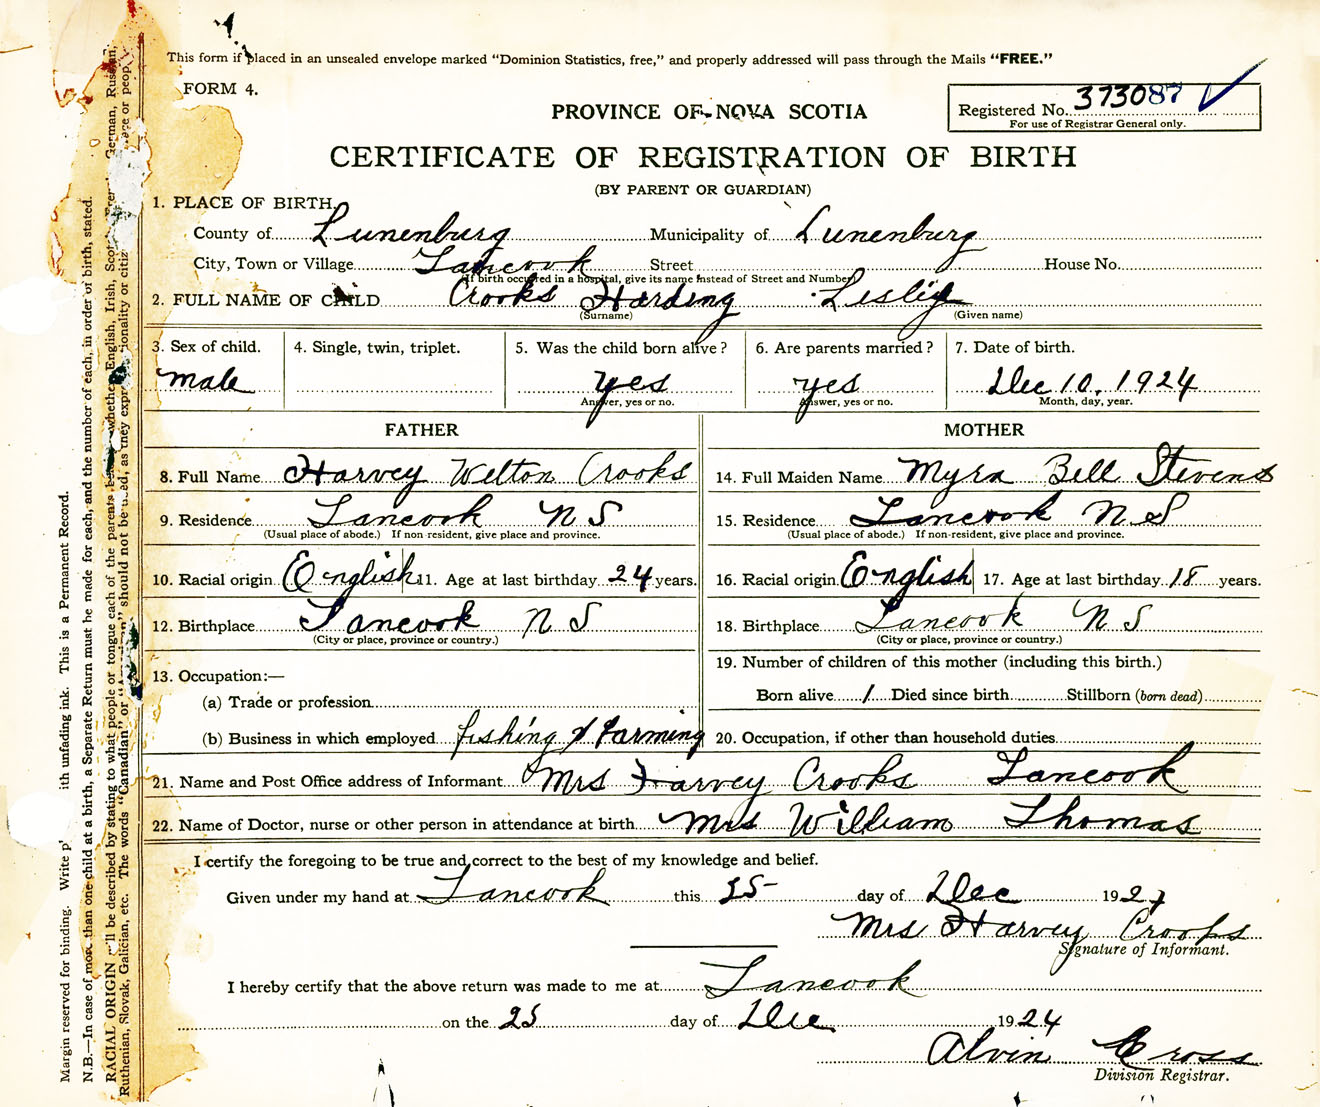 This form if placed in an unsealed envelope marked "Dominion Statistics, free," and properly addressed will pass through the Mails "FREE."
FORM 4.
PROVINCE OF NOVA SCOTIA
Registered No. 373087
For use of Registrar General only.
CERTIFICATE OF REGISTRATION OF BIRTH
(BY PARENT OR GUARDIAN)
1. PLACE OF BIRTH.
County of Lunenburg Municipality of Lunenburg
City, Town or Village Tancook Street House No.
(If birth occurred in a hospital, give its name instead of Street and Number)
2. FULL NAME OF CHILD Crooks Harding Leslie
(Surname) (Given name)
3. Sex of child. 4. Single, twin, triplet. 5. Was the child born alive? 6. Are parents married? 7. Date of birth.
male yes yes Dec 10, 1924
Answer, yes or no. Answer, yes or no. Month, day, year.
FATHER MOTHER
8. Full Name Harvey Welton Crooks 14. Full Maiden Name Myra Bell Stevens
9. Residence Tancook N S 15. Residence Tancook N S
(Usual place of abode.) If non-resident, give place and province. (Usual place of abode.) If non-resident, give place and province.
10. Racial origin English 11. Age at last birthday 24 years. 16. Racial origin English 17. Age at last birthday 18 years.
12. Birthplace Tancook N S 18. Birthplace Tancook N S
(City or place, province or country.) (City or place, province or country.)
13. Occupation:— 19. Number of children of this mother (including this birth.)
(a) Trade or profession Born alive 1 Died since birth Stillborn (born dead)
(b) Business in which employed fishing & farming 20. Occupation, if other than household duties
21. Name and Post Office address of Informant Mrs Harvey Crooks Tancook
22. Name of Doctor, nurse or other person in attendance at birth Mrs William Thomas
I certify the foregoing to be true and correct to the best of my knowledge and belief.
Given under my hand at Tancook this 25 day of Dec 192
Mrs Harvey Crooks
Signature of Informant.
I hereby certify that the above return was made to me at Tancook
on the 25 day of Dec 1924
Alvin Cross
Division Registrar.
Margin reserved for binding. Write ith unfading ink. This is a Permanent Record.
N.B.—In case of more than one child at a birth, a Separate Return must be made for each, and the number of each, in order of birth, stated.
RACIAL ORIGIN 'll be described by stating to what people or tongue each of the parents whether English, Irish, Scot German, Russian,
Ruthenian, Slovak, Galician, etc. The words "Canadian" or should not be as they nationality or citiz or peop